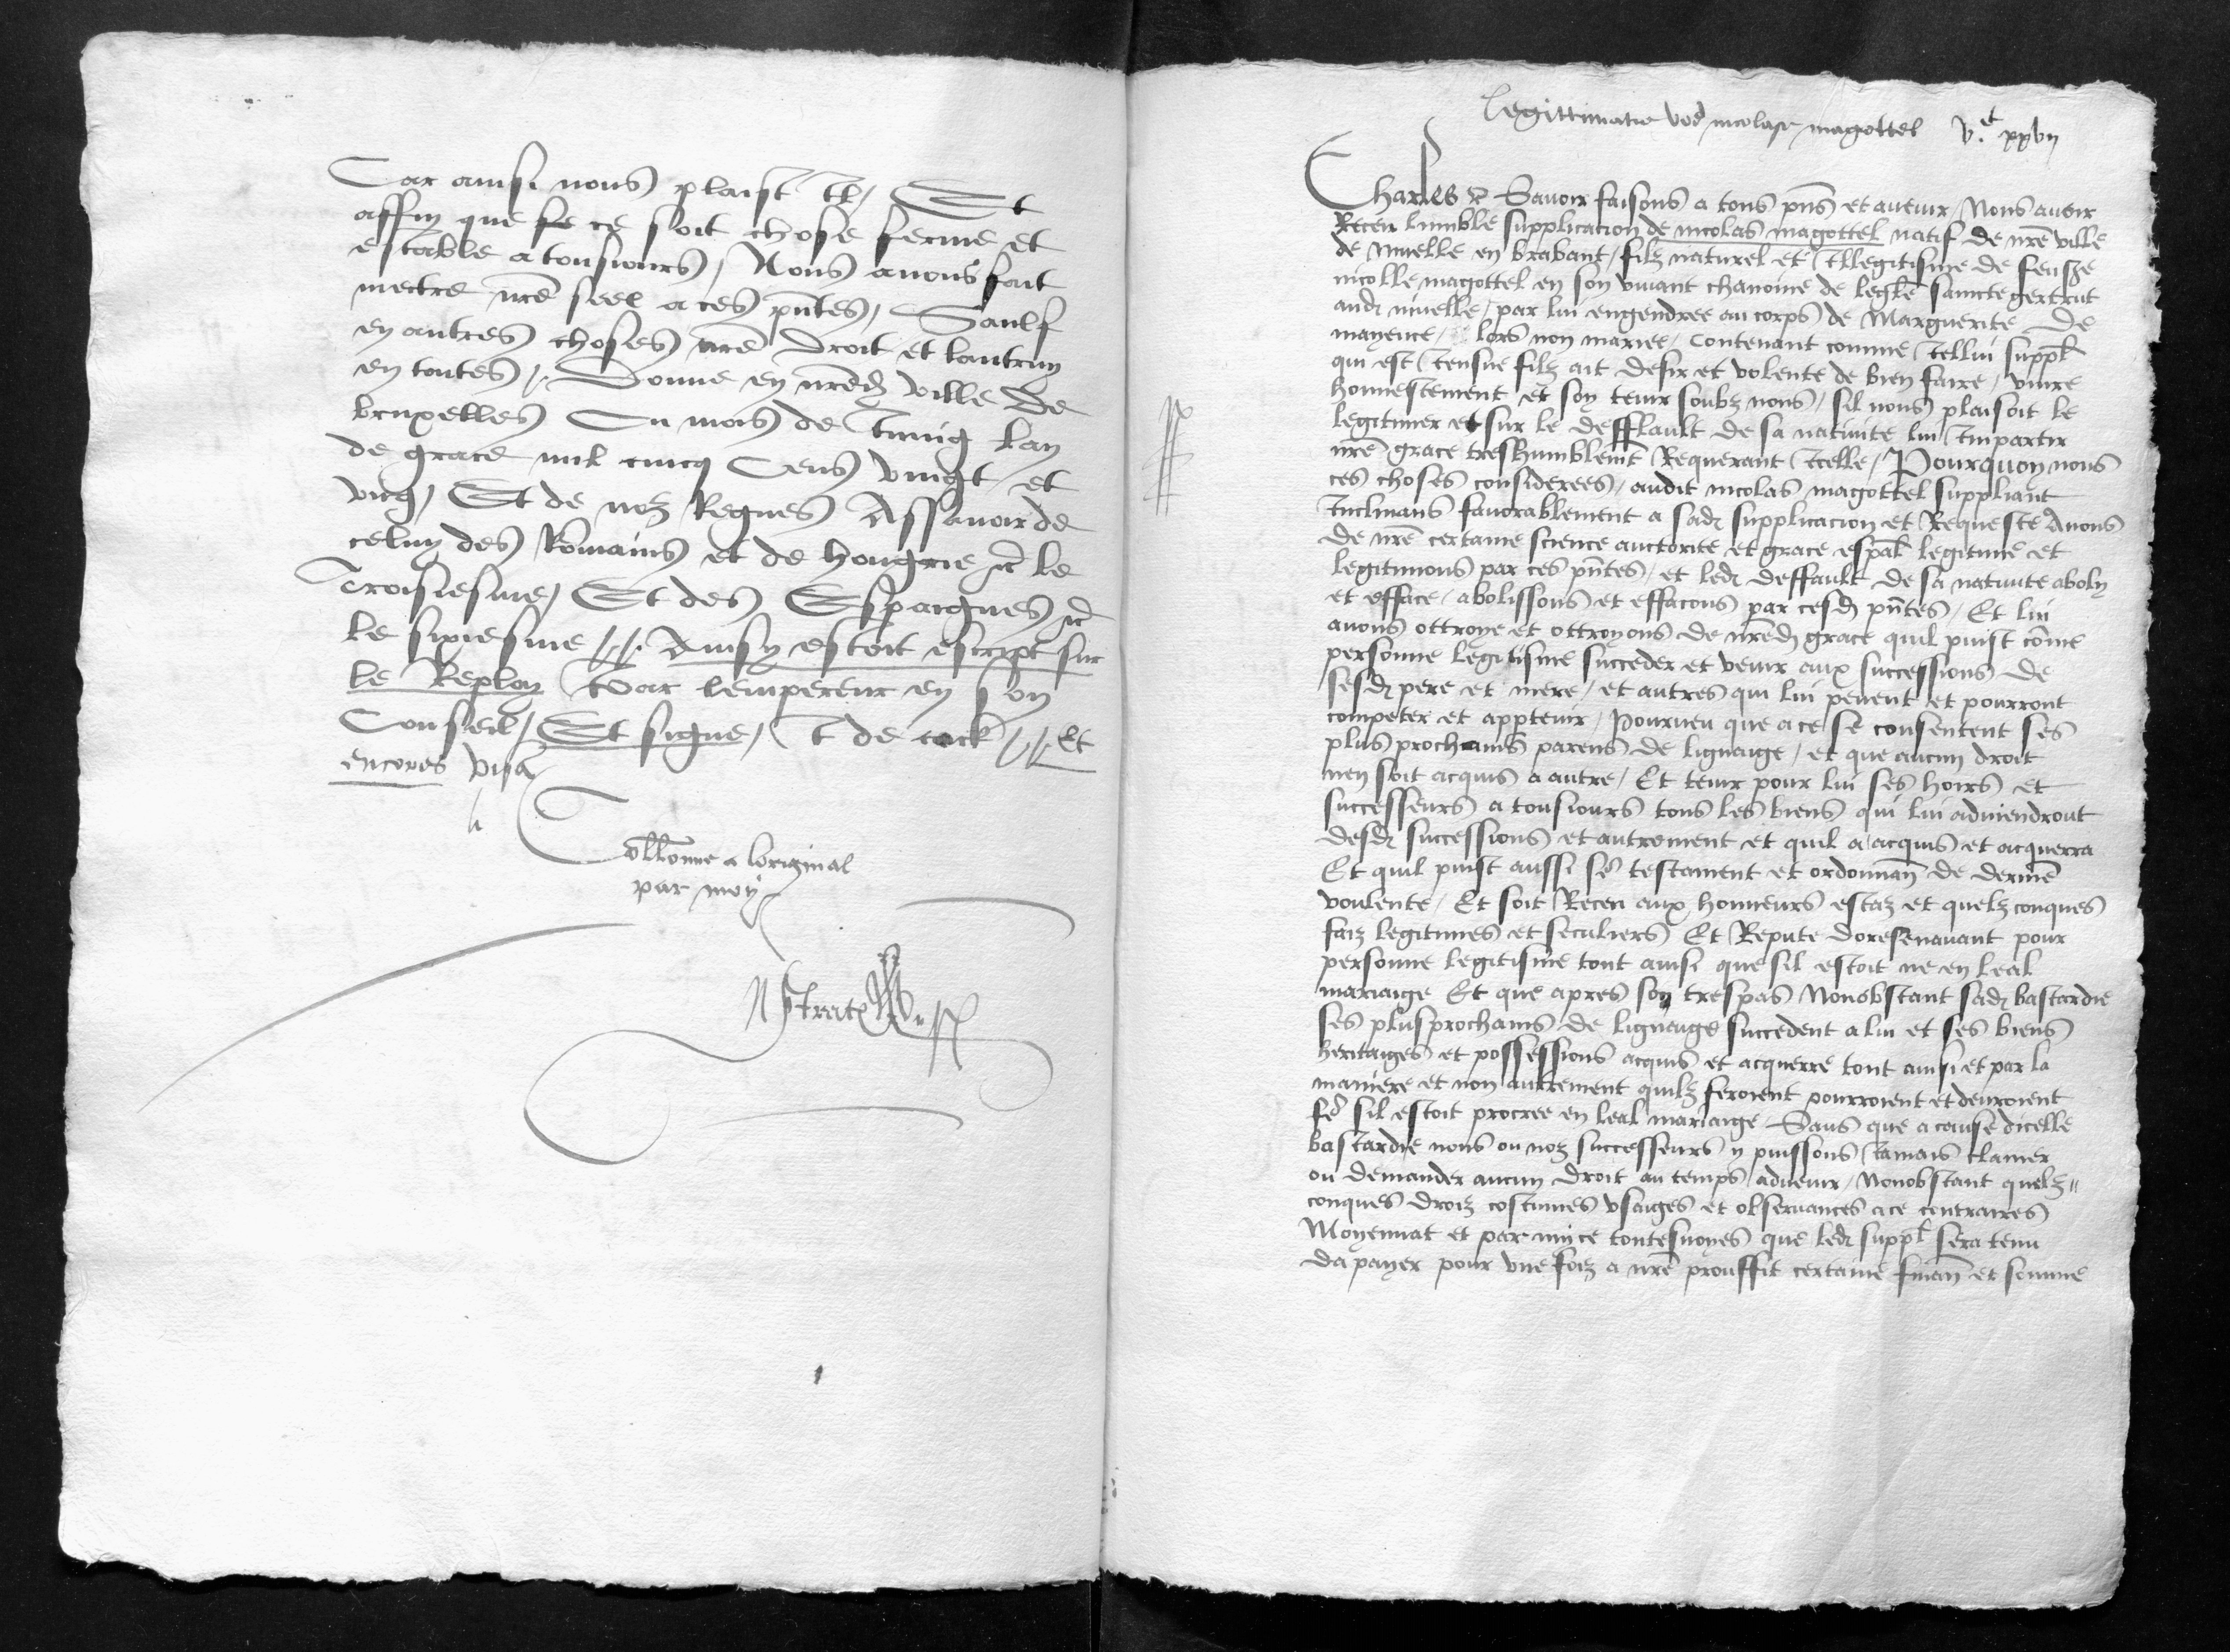 Car ainsi nous plaist Il / Et
affin que se ce soit chose ferme et
estable a tousiours / Nous auons fait
mectre nre seel a ces pntes / Saulf
en autres choses nre droit et lautruy
en toutes /. Donne en nred ville de
bruxelles Ou mois de Juing lan
de grace mil cincq Cens vingt et
vng / Et de noz Regnes Assauoir de
celuy des Rommains et de hongrie &c le
Troisiesme / Et des Espaignes &c
le sixiesme //. Ainsy estoit escript sur
le Reploy Par lempereur en son
Conseil / Et signe / J de cock //. Et
encores visa
Collonne a loriginal
par moy
Legittimatie vod nicolase magottel v.c xxvij
Charles &c Sauoir faisons a tous pns et auenir / Nous auoir
Receu lumble supplicacion de nicolas magottel natif de nre ville
de niuelle en brabant / filz naturel et Illegitisme de feu sre
nicolle magottel en son viuant chanoine de legle saincte gertrut
aud niuelle / par lui engendree au corps de Marguerite de
mayence / lors non mariee / Contenant comme Icellui suppl
qui est Jeusne filz ait desir et volente de bien faire / viure
honnestement et soy tenir soubz nous / sil nous plaisoit le
legitimer et sur le deffault de sa natiuite lui Impartir
nre grace treshumblemt Requerant Icelle / Pourquoy nous
ces choses considerees / audit nicolas magottel suppliant
Inclinans fauorablement a sad supplicacion et Requeste Auons
de nre certaine science auctorite et grace espal legitime et
legitimons par ces pntes / et led deffault de sa natiuite aboly
et efface / abolissons et effacons par cesd pntes / Et lui
auons ottroye et ottroyons de nred grace quil puist come
personne legitisme succeder et venir aux successions de
sesd pere et mere / et autres qui lui peuent et pourront
competer et apptenir / Pourueu que a ce se consentent ses
plus prochains parens de lignaige / et que aucun droit
nen soit acquis a autre / Et tenir pour lui ses hoirs et
successeurs a tousiours tous les biens qui lui aduiendront
desd successions et autrement et quil a acquis et acquerra
Et quil puist aussi fe testament et ordonnan de derniee
voulente / Et soit Receu aux honneurs estaz et quelzconques
faiz legitimes et seculiers Et Repute doresenauant pour
personne legitisme tout ainsi que sil estoit ne en leal
mariaige Et que apres son trespas Nonobstant sad bastardie
ses plusprochains de lignaige succedent a lui et ses biens
heritaiges et possessions acquis et acquerre tout ainsi et par la
maniere et non autrement quilz feroient pourroient et deuroient
fe sil estoit procree en leal mariaige / Sans que a cause dicelle
bastardie nous ou noz successeurs y puissons Jamais clamer
ou demander aucun droit au temps aduenir / Nonobstant quelz"
conques droiz costumes vsaiges et obseruances a ce contraires
Moyennat et parmi ce toutesuoyes que led suppl sera tenu
da payer pour vne foiz a nre prouffit certaine finan et somme